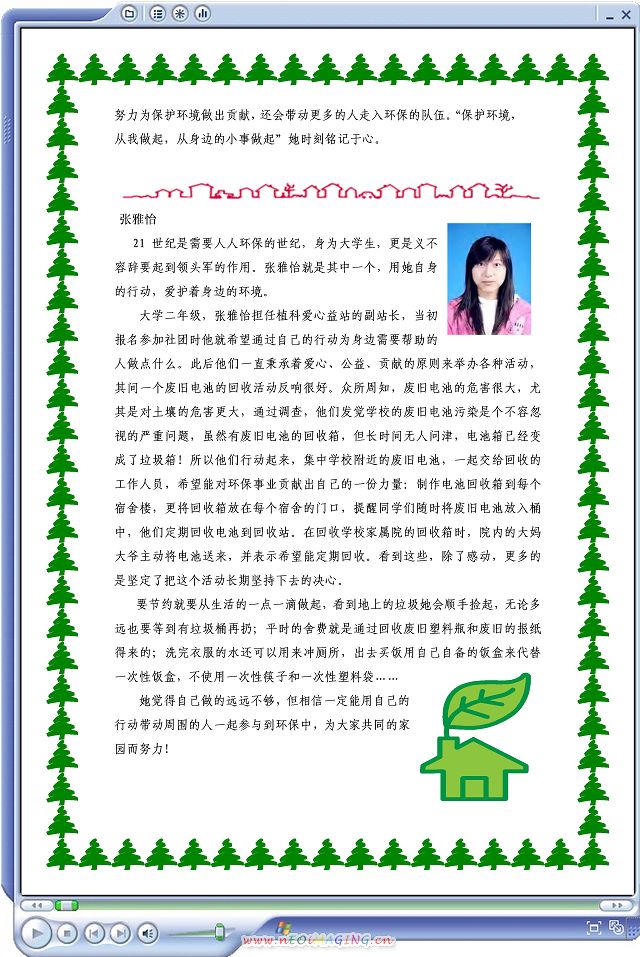 努力为保护环境做出贡献,还会带动更多的人走入环保的队伍。“保护环境,
从我做起,从身边的小事做起”她时刻铭记于心。
张雅怡
21 世纪是需要人人环保的世纪,身为大学生,更是义不
容辞要起到领头军的作用。张雅怡就是其中一个,用她自身
的行动,爱护着身边的环境。
大学二年级,张雅怡担任植科爱心益站的副站长,当初
报名参加社团时他就希望通过自己的行动为身边需要帮助的
人做点什么。此后他们一直秉承着爱心、公益、贡献的原则来举办各种活动,
其间一个废旧电池的回收活动反响很好。众所周知,废旧电池的危害很大,尤
其是对土壤的危害更大,通过调查,他们发觉学校的废旧电池污染是个不容忽
视的严重问题,虽然有废旧电池的回收箱,但长时间无人问津,电池箱已经变
成了垃圾箱!所以他们行动起来,集中学校附近的废旧电池,一起交给回收的
工作人员,希望能对环保事业贡献出自己的一份力量;制作电池回收箱到每个
宿舍楼,更将回收箱放在每个宿舍的门口,提醒同学们随时将废旧电池放入桶
中,他们定期回收电池到回收站。在回收学校家属院的回收箱时,院内的大妈
大爷主动将电池送来,并表示希望能定期回收。看到这些,除了感动,更多的
是坚定了把这个活动长期坚持下去的决心。
要节约就要从生活的一点一滴做起,看到地上的垃圾她会顺手捡起,无论多
远也要等到有垃圾桶再扔;平时的舍费就是通过回收废旧塑料瓶和废旧的报纸
得来的;洗完衣服的水还可以用来冲厕所,出去买饭用自己自备的饭盒来代替
一次性饭盒,不使用一次性筷子和一次性塑料袋……
她觉得自己做的远远不够,但相信一定能用自己的
行动带动周围的人一起参与到环保中,为大家共同的家
园而努力!
www.nEOiMAGING.cn